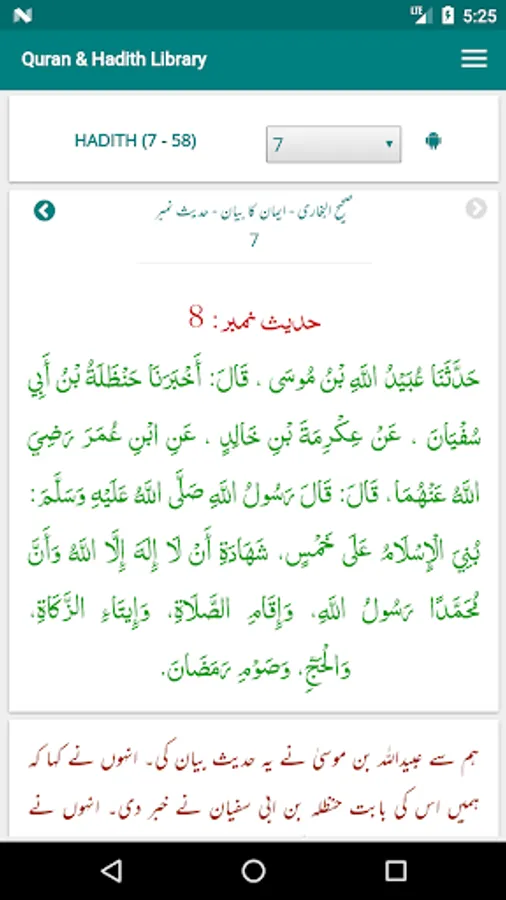 LTE 5:25
Quran & Hadith Library
HADITH (7 - 58) 7
صحیح البخاری - ایمان کا بیان - حدیث نمبر
7
حدیث نمبر: 8
حَدَّثَنَا عُبَيْدُ اللَّهِ بْنُ مُوسَى ، قَالَ: أَخْبَرَنَا حَنْظَلَةُ بْنُ أَبِي
سُفْيَانَ ، عَنْ عِكْرِمَةَ بْنِ خَالِدٍ ، عَنِ ابْنِ عُمَرَ رَضِيَ
اللَّهُ عَنْهُمَا، قَالَ: قَالَ رَسُولُ اللَّهِ صَلَّى اللَّهُ عَلَيْهِ وَسَلَّمَ:
بُنِيَ الْإِسْلَامُ عَلَى خَمْسٍ، شَهَادَةِ أَنْ لَا إِلَهَ إِلَّا اللَّهُ وَأَنَّ
مُحَمَّدًا رَسُولُ اللَّهِ، وَإِقَامِ الصَّلَاةِ، وَإِيتَاءِ الزَّكَاةِ،
وَالْحَجِّ، وَصَوْمِ رَمَضَانَ.
ہم سے عبیداللہ بن موسیٰ نے یہ حدیث بیان کی۔ انہوں نے کہا کہ
ہمیں اس کی بابت حنظلہ بن ابی سفیان نے خبر دی۔ انہوں نے